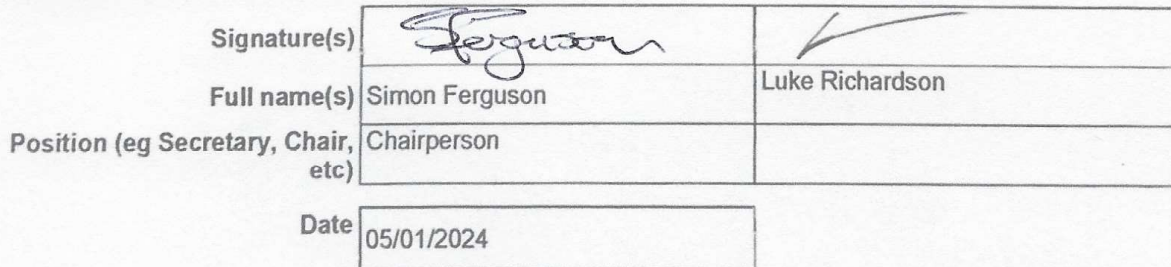 Signature(s) SFerguson
Full name(s) Simon Ferguson Luke Richardson
Position (eg Secretary, Chair, Chairperson
etc)
Date 05/01/2024